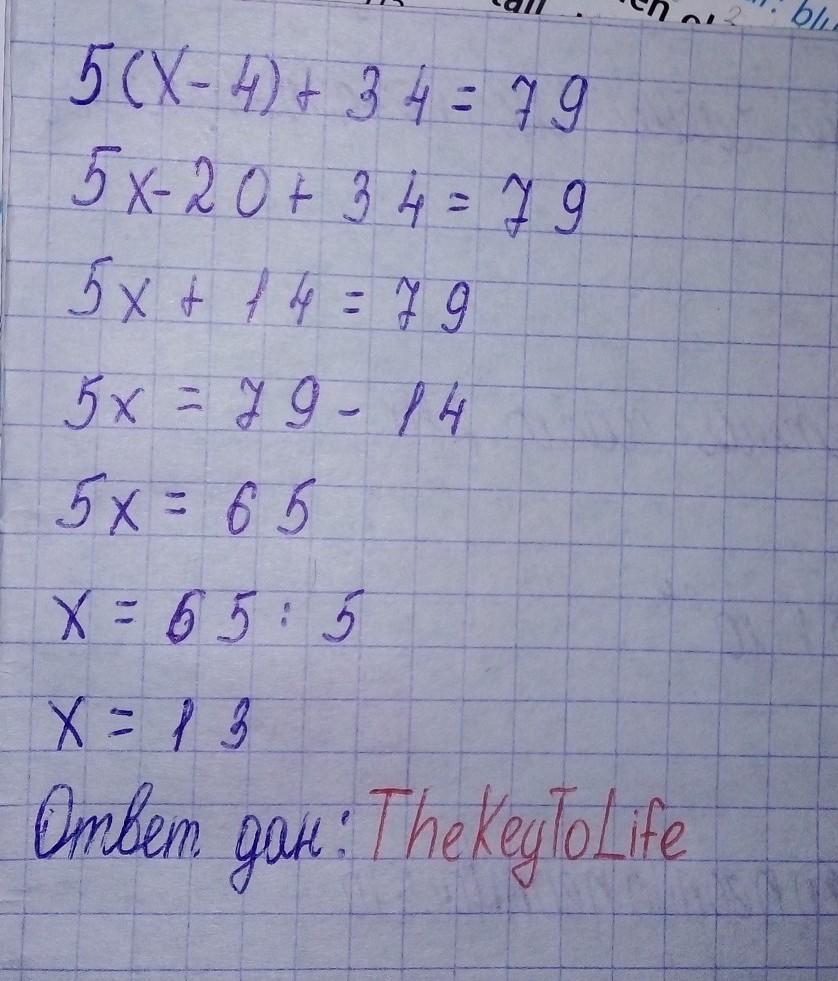 5(x-4)+34=79
5x-20+34=79
5x+14=79
5x=79-14
5x=65
x=65:5
x=13
Ответ дан: TheKeyToLife